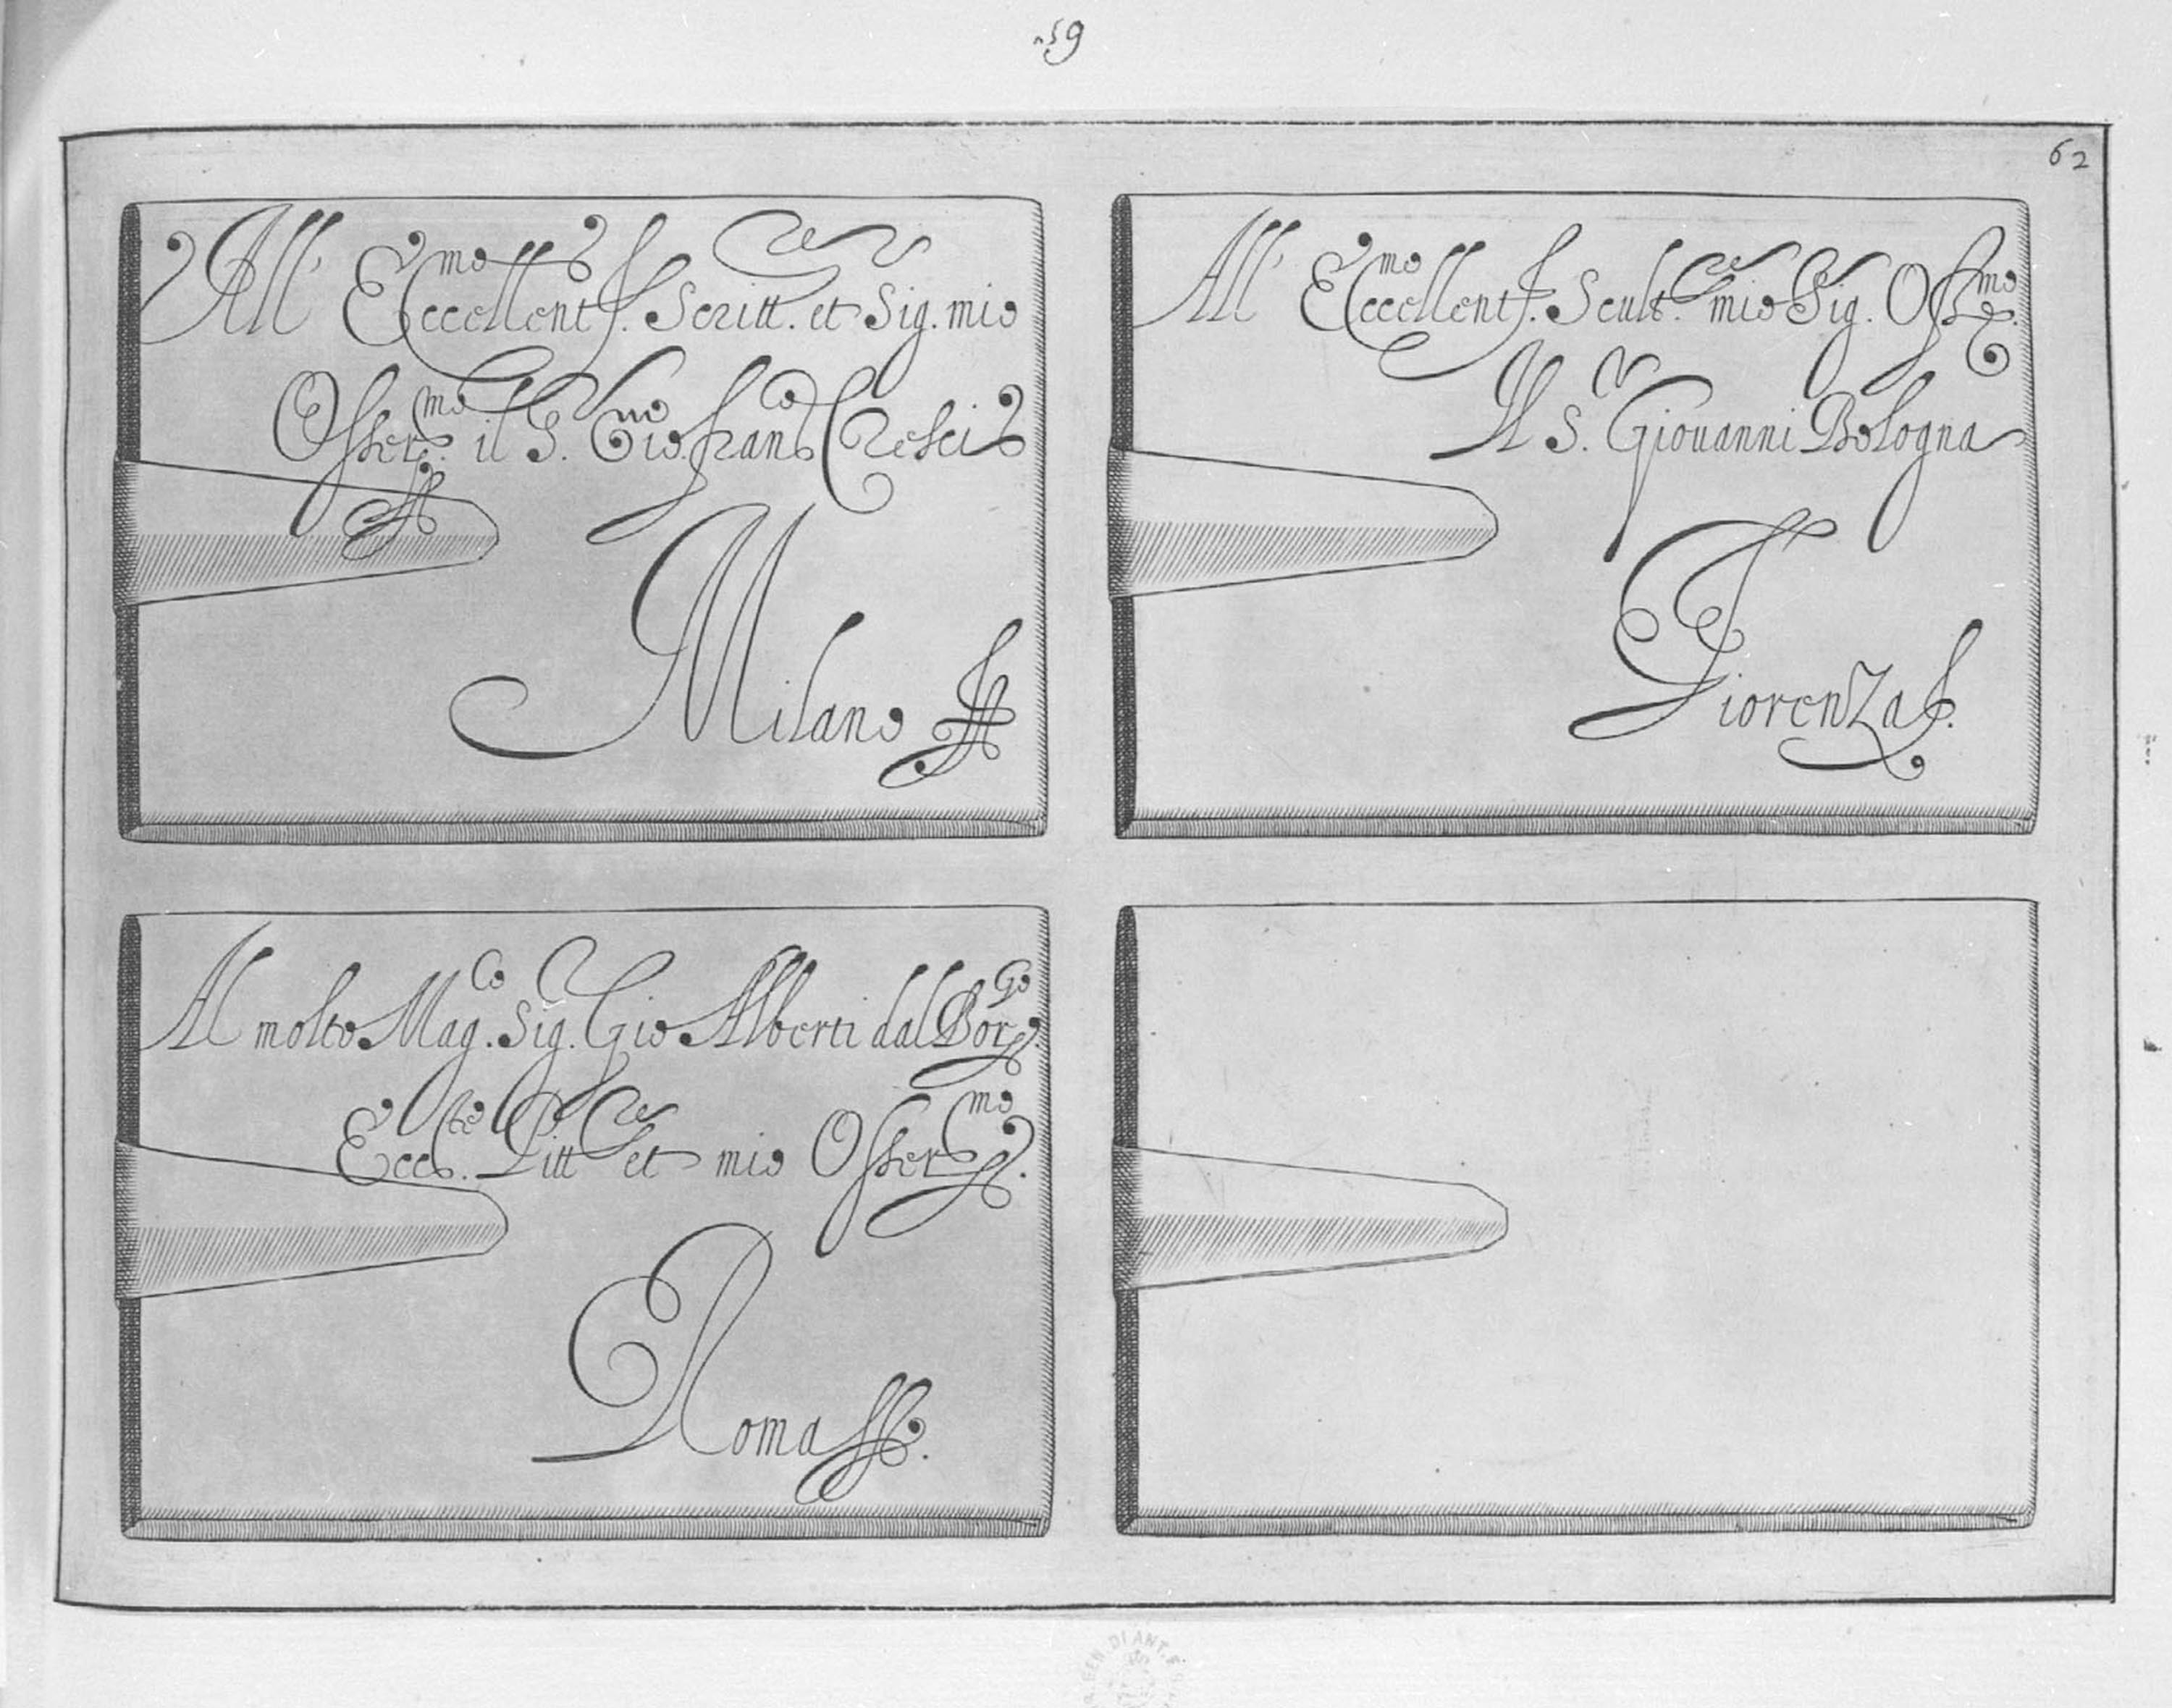 59
62
All' Eccellent.mo Scritt.re et Sig. mio
Osser.mo il S. Gio. fran.co Cresci
Milano
All' Eccellent.mo Scult.re mio Sig. Oss.mo
Il S.r Giouanni Bologna
Fiorenza
Al molto Mag.co Sig. Gio Alberti dal Borgo
Ecc.te Pitt.re et mio Osser.mo
Roma